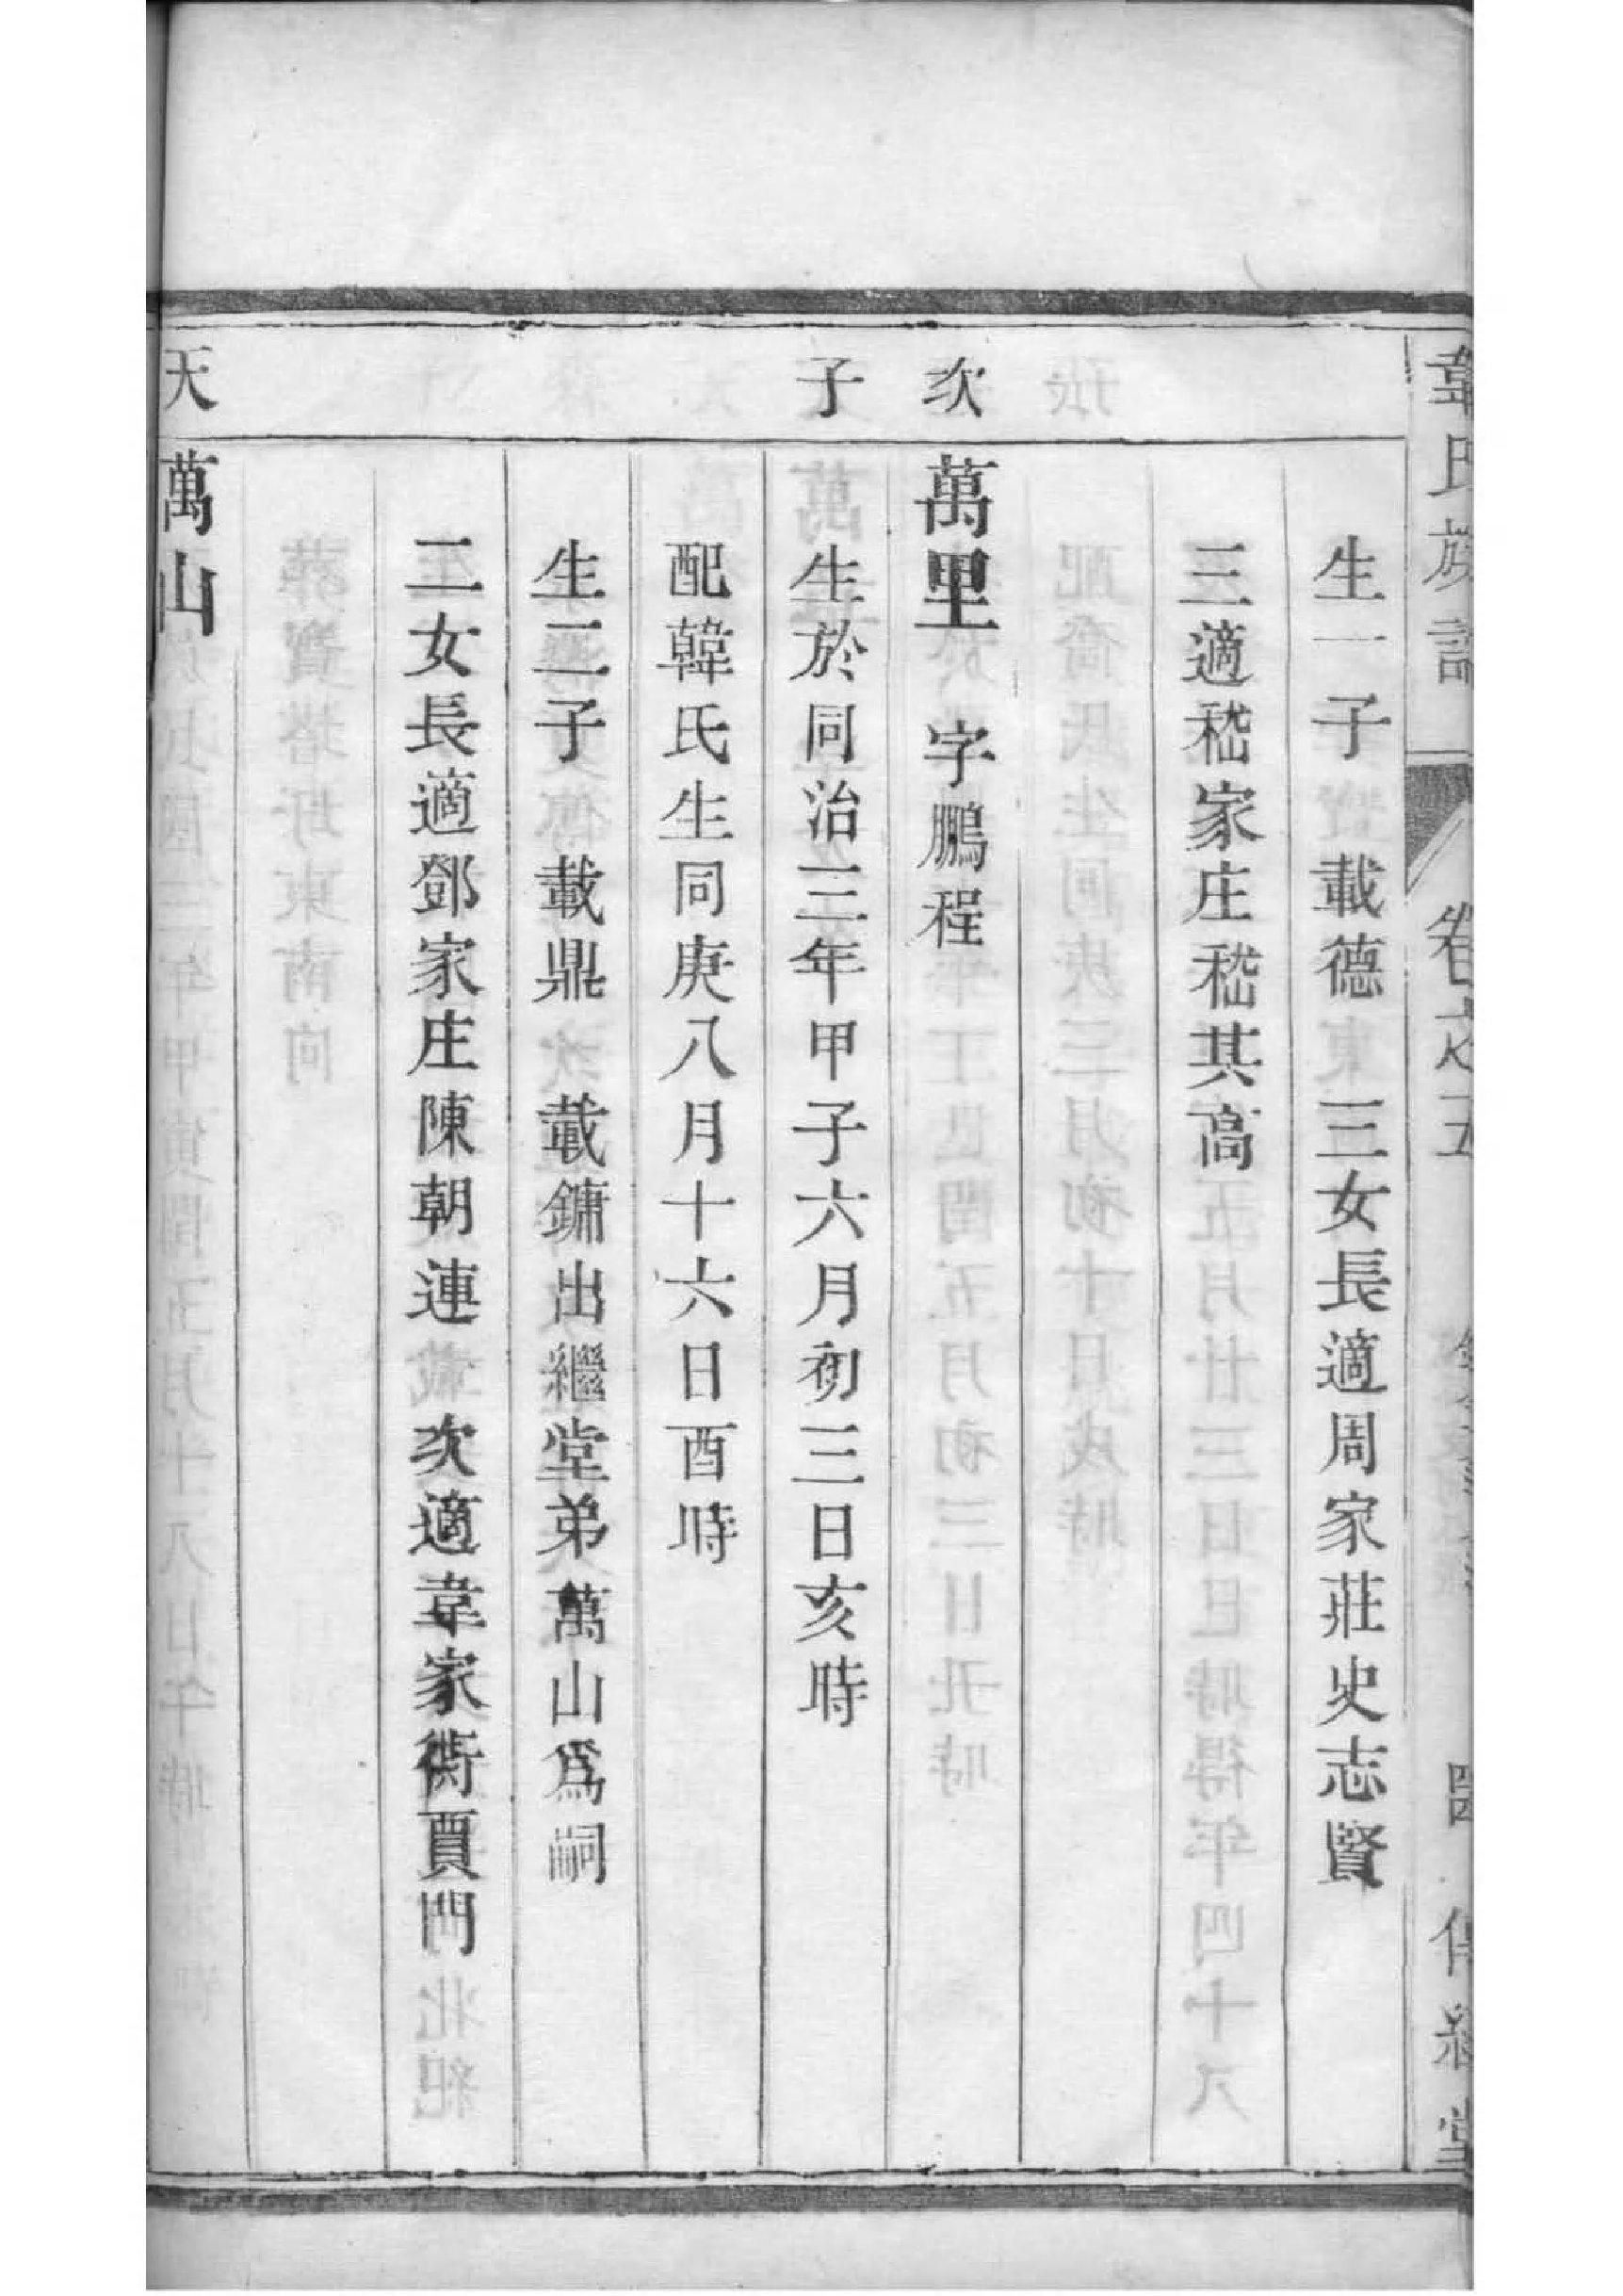 韋氏族譜 卷之五 四
生一子 載德 三女長適周家莊史志賢
三適嵇家庄嵇其高
次 萬里 字鵬程
子 生於同治三年甲子六月初三日亥時
配韓氏生同庚八月十六日酉時
生二子 載鼎 載鏞出繼堂弟萬山爲嗣
二女長適鄧家庄陳朝連 次適韋家衖賈門
天 萬山